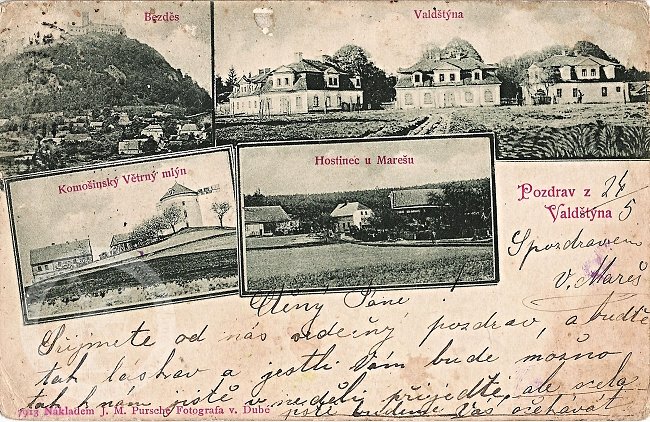 Bezděs
Valdštýna
Komošinský Větrný mlýn
Hostinec u Marešu
Pozdrav z
Valdštýna
24/5
S pozdravem
V. Mareš
Ctěný Pane!
Přijmete od nás srdečný pozdrav, a buďte
tak láskav a jestli Vám bude možno
tak k nám jistě v neděli přijeďte, ale zcela
jistě budeme Vás očekávat
7913 Nákladem J. M. Pursche Fotografa v. Dubé